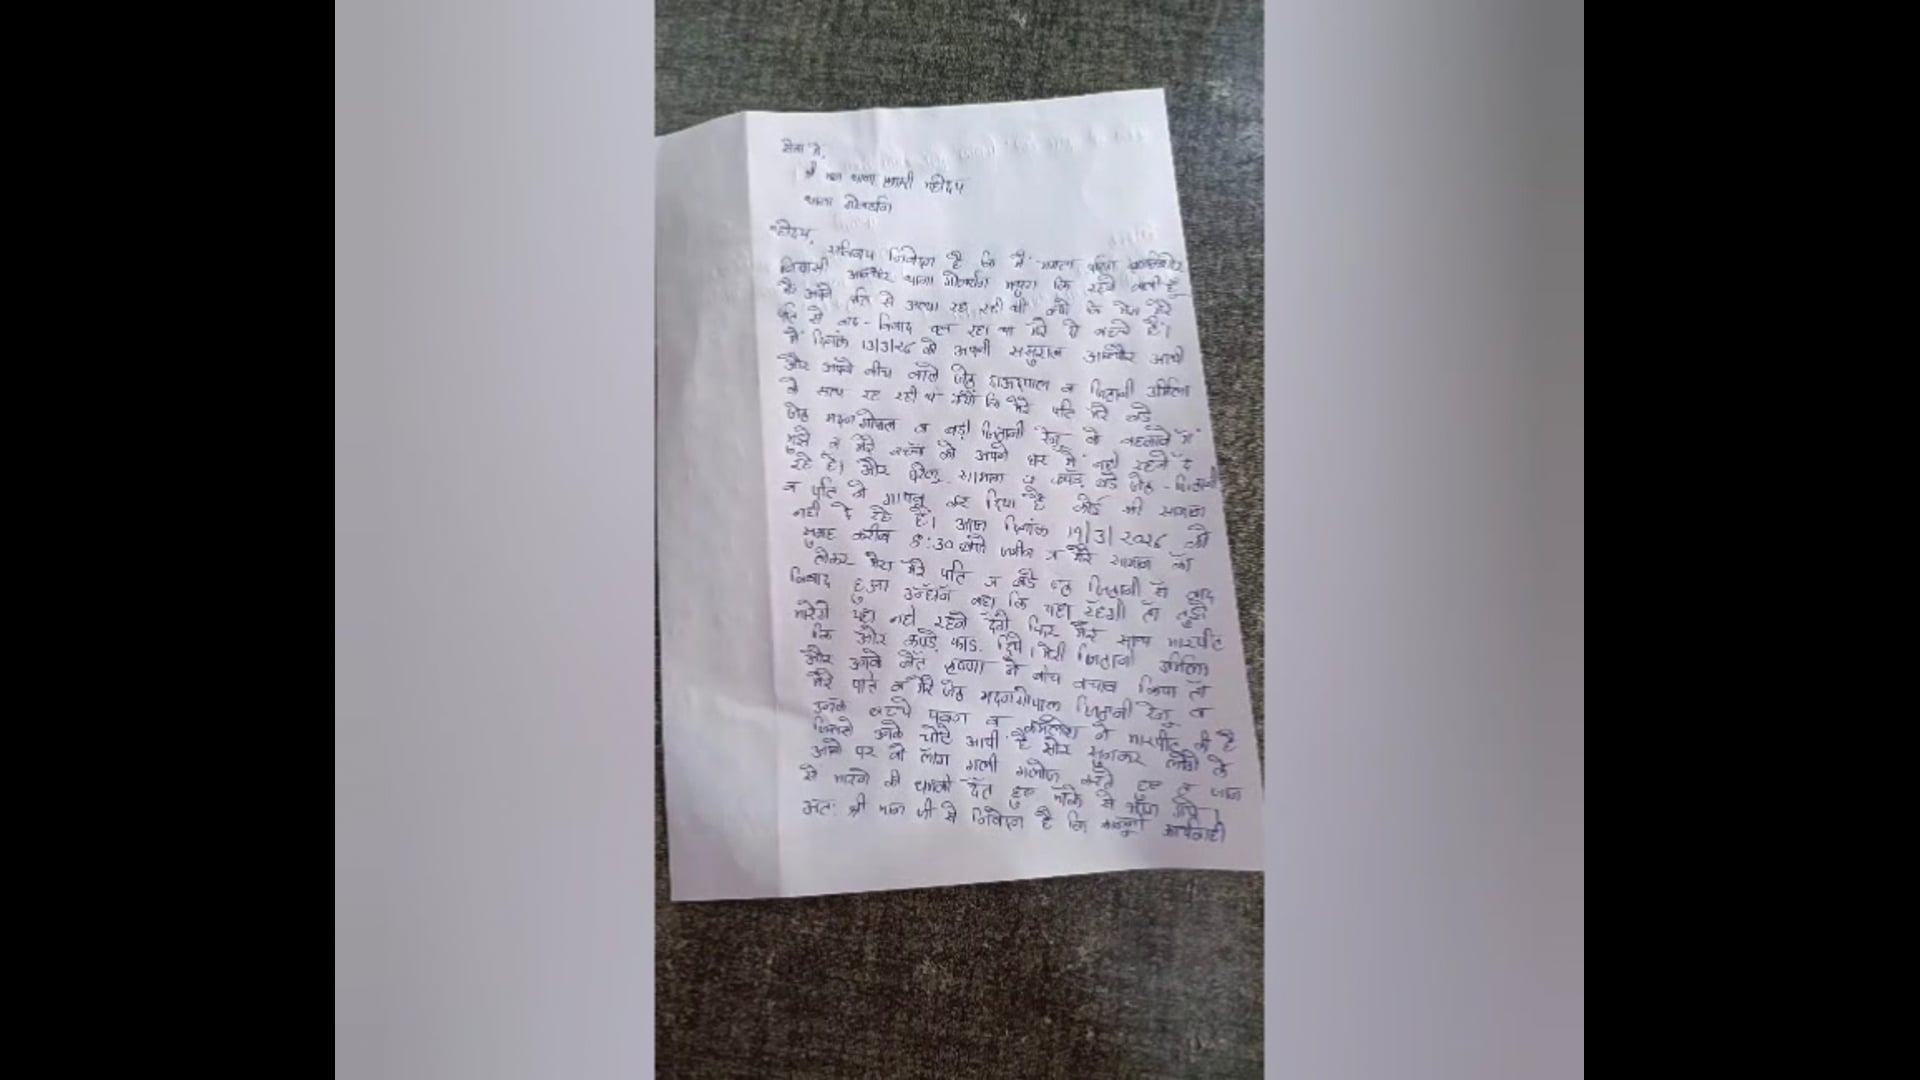 सेवा में,
श्री मान थाना प्रभारी महोदय
थाना गोवर्धन
महोदय,
सविनय निवेदन है कि मैं ममता पत्नि
निवासी आन्यौर थाना गोवर्धन मथुरा कि रहने वाली हूँ
मैं अपने पति से अलग रह रही थी क्यों कि मेरा मेरे
पति से वाद-विवाद चल रहा था मेरे दो बच्चे है।
मैं दिनांक 13/3/26 को अपनी ससुराल आन्यौर आयी
और अपने बीच वाले जेठ दाऊदयाल व जिठानी उर्मिला
के साथ रह रही थी क्यों कि मेरे पति मेरे बडे
जेठ मदनगोपाल व बड़ी जिठानी रेनू के बहकावे में
मुझे व मेरे बच्चों को अपने घर में नहीं रहने दे
रहे है। और घरेलू सामान व बडे जेठ-जिठानी
व पति ने गायब कर दिया है कोई भी सामान
नहीं दे रहे है। आज दिनांक 19/3/2026 को
सुबह करीब 8:30 बजे जमीन व मेरे सामान को
लेकर मेरा मेरे पति व बडे जेठ जिठानी से वाद
विवाद हुआ उन्होंने कहा कि यहा रहेगी तो तुझे
मारेंगे यहा नहीं रहने देंगे फिर मेरे साथ मारपीट
कि और कपडे फाड दिये। मेरी जिठानी उर्मिला
और उनके बेटे कृष्णा ने बीच बचाव किया तो
मेरे पति व मेरे जेठ मदनगोपाल जिठानी रेनू व
उनके बच्चे पवन व ने मारपीट की है
जिससे उनके चोटे आयी है सोर सुनकर लोगों के
आने पर वो लोग गाली गलोज करते हुए व जान
से मारने की धमकी देते हुए मौके से भाग गये।
अत: श्री मान जी से निवेदन है कि कानूनी कार्यवाही